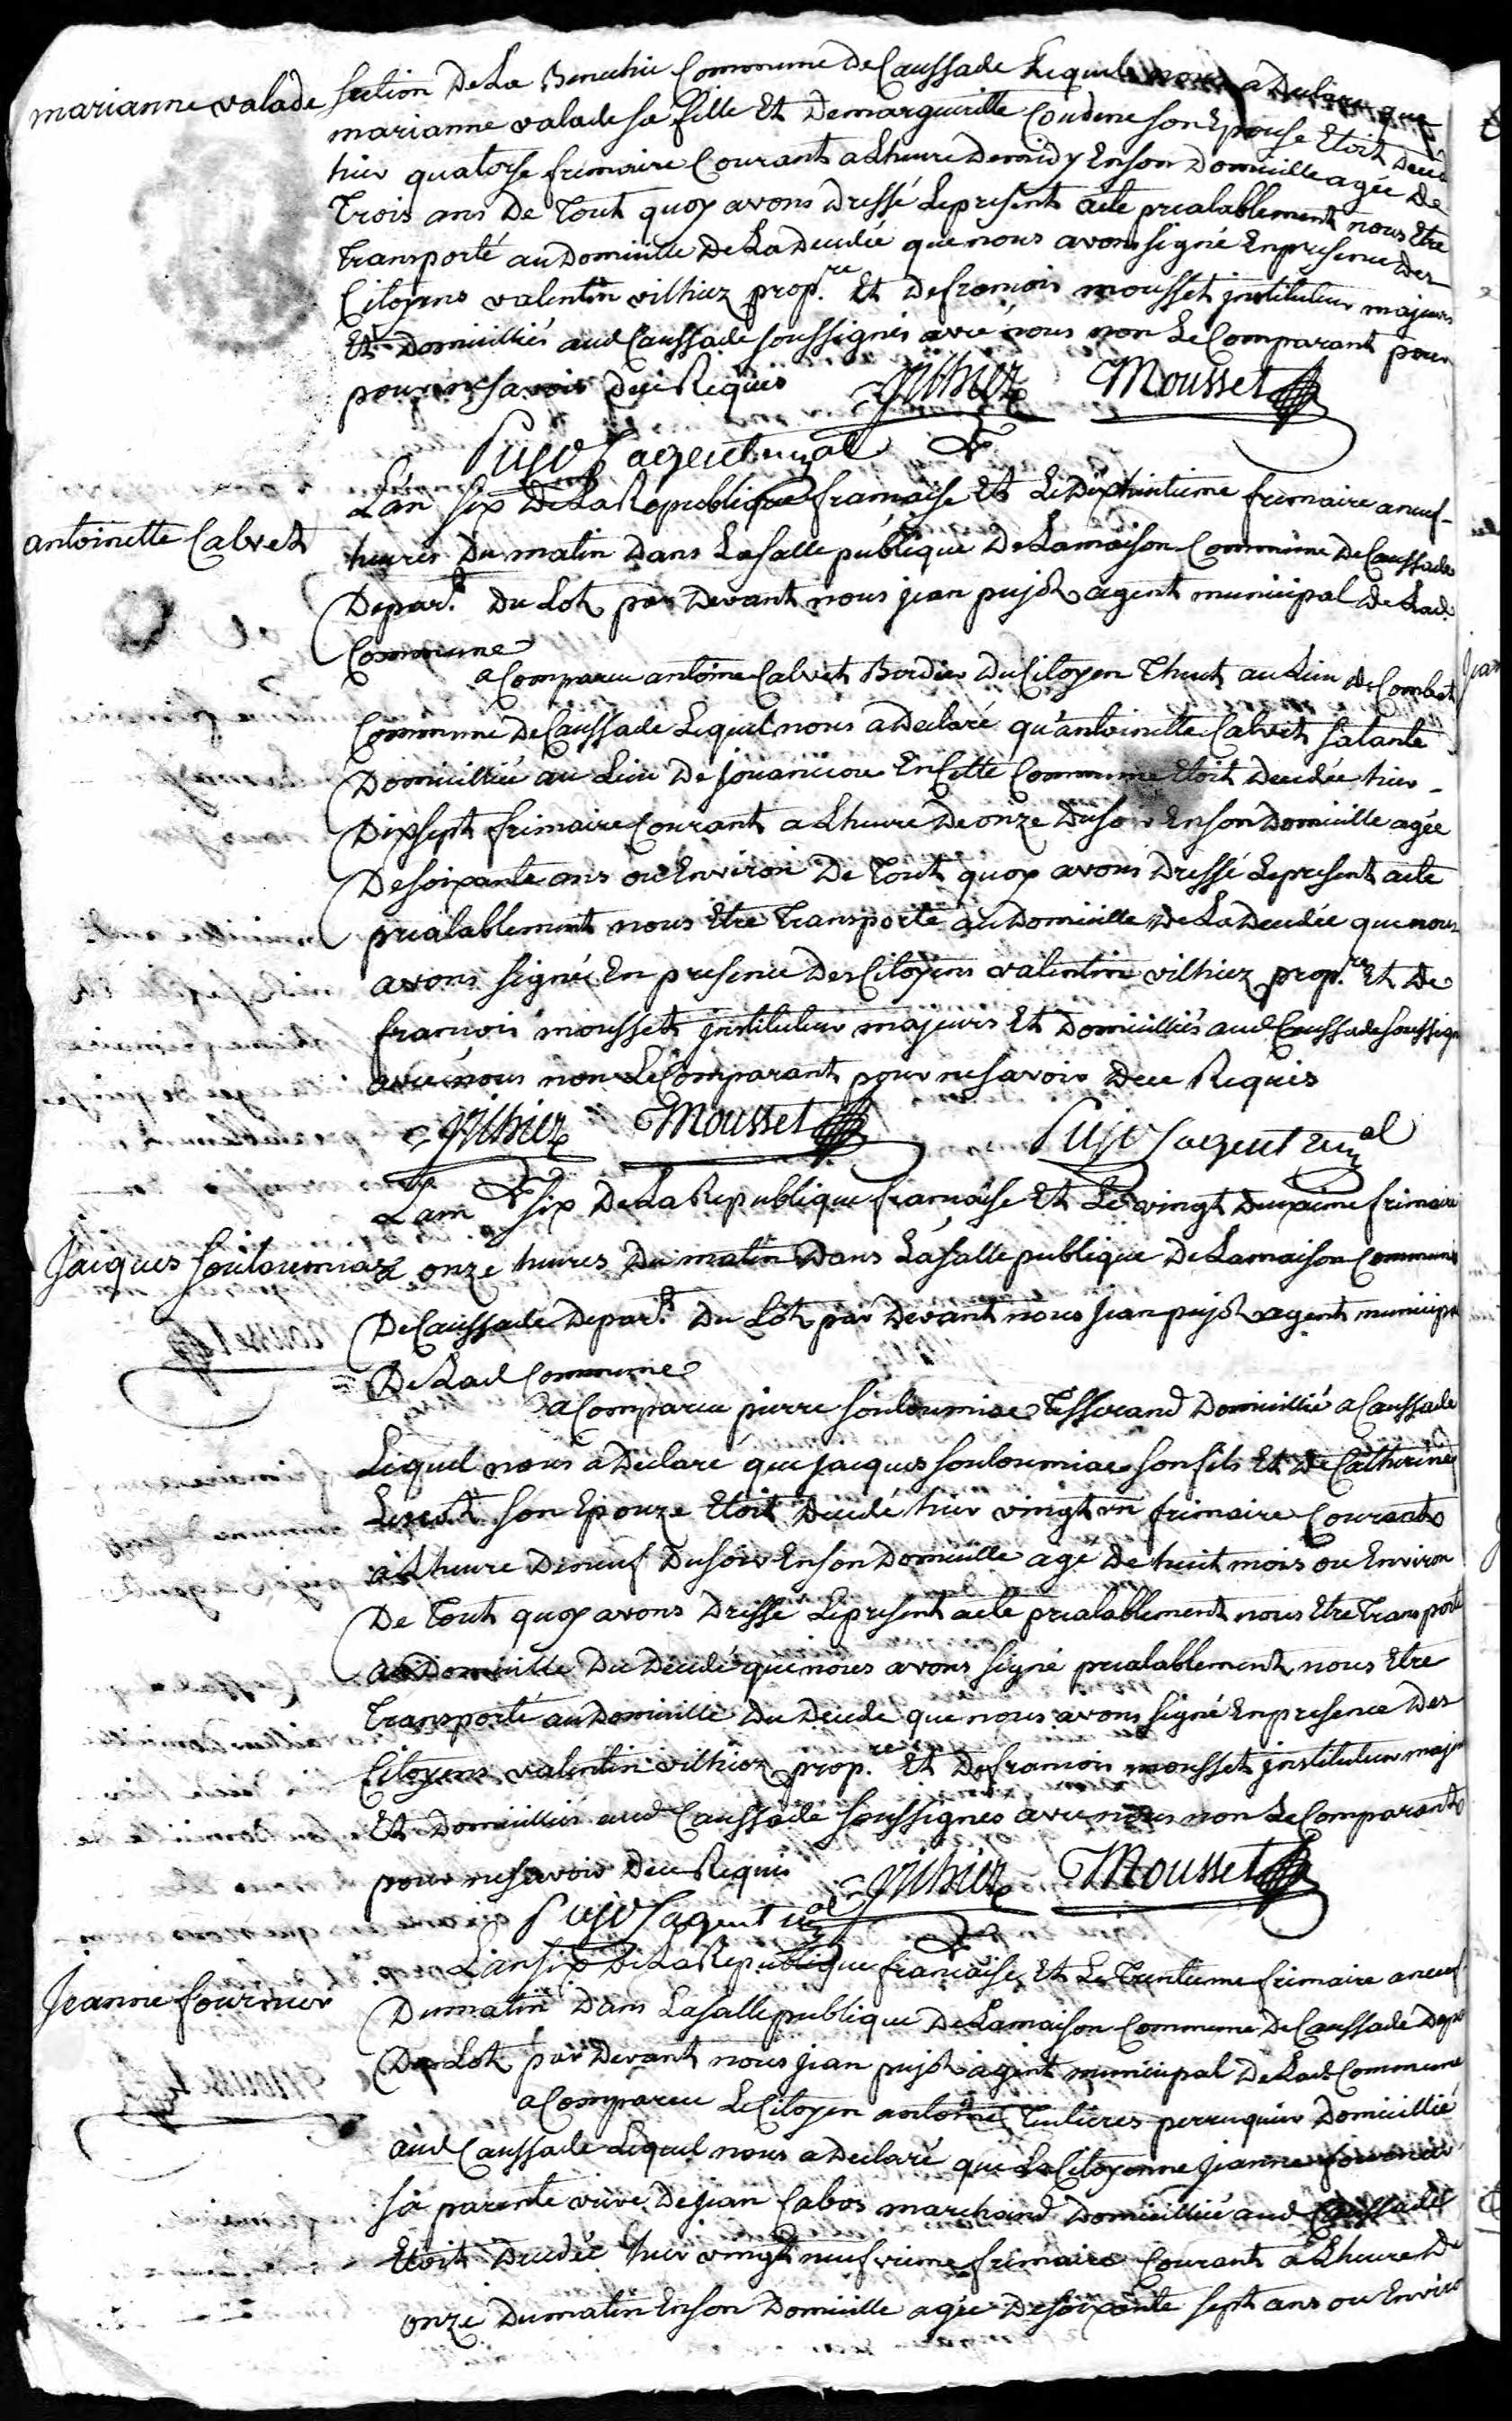 marianne valade
section De La Benechie Commune De Caussade Lequel nous a Declaré que
marianne valade sa fille Et De margueritte Couderc son Epouse Etoit Deced
hier quatorse frimaire Courant a Lheure De midy En son Domicille agée De
Trois ans De Tout quoy avons Dressé Le present acte prealablement nous Etre
Transporté au Domicille De La Decedée que nous avons signé En presence Des
Citoyens valentin vilhiez prop.re Et De francois mousset instituteur majeurs
Et Domicilliés aud Caussade soussignés avec nous non Le Comparant pour
pour ne savoir De ce Requis Vilhiez Mousset
Pujol agent mal
antoinette Calvet
L'an six De La Republique francaise Et Le Dixhuitieme frimaire a neuf-
heures Du matin Dans La salle publique De La maison Commune De Caussade
Depar.t Du Lot par Devant nous jean pujol agent municipal De Lad.
Commune
a Comparu antoine Calvet Bordier Du Citoyen Thuet au Lieu de Combet
Commune De Caussade Lequel nous a Declaré qu'antoinette Calvet sa tante
Domicilliée au Lieu De jouancou En Cette Commune Etoit Decedée hier -
Dixsept frimaire Courant a Lheure De onze Du soir En son Domicille agée
De soixante ans ou Environ De Tout quoy avons Dressé Le present acte
prealablement nous Etre Transporté au Domicille De La Decedée que nous
avons signé En presence Des Citoyens valentin vilhiez prop.re Et De
francois mousset instituteur majeurs Et Domicilliés aud Caussade soussign
avec nous non Le Comparant pour ne savoir De ce Requis
Vilhiez Mousset Pujol agent mal
Jacques souloumiac
L'an six De La Republique francaise Et Le vingt Deuxieme frimaire
a onze heures Du matin Dans La salle publique De La maison Commune
De Caussade Depar.t Du Lot par Devant nous jean pujol agent municipa
De Lad Commune
a Comparu pierre souloumiac Tisserand Domicillié a Caussade
Lequel nous a Declaré que jacques souloumiac son fils Et De Catherine
son Epouze Etoit Decedé hier vingt un frimaire Courant
a Lheure De neuf Du soir En son Domicille agé De huit mois ou Environ
De Tout quoy avons Dressé Le present acte prealablement nous Etre Transporté
au Domicille Du Decedé que nous avons signé prealablement nous Etre
Transporté au Domicille Du Decedé que nous avons signé En presence Des
Citoyens valentin vilhiez prop.re Et De francois mousset instituteur maje
Et Domicilliés aud Caussade soussignés avec nous non Le Comparant
pour ne savoir De ce Requis Vilhiez Mousset
Pujol agent mal
Jeanne fournier
L'an six De La Republique francaise Et Le Trentieme frimaire a neuf
Du matin Dans La salle publique De La maison Commune De Caussade Depa
Du Lot par Devant nous jean pujol agent municipal De Lad Commune
a Comparu Le Citoyen antoine Teulieres perruquier Domicillié
aud Caussade Lequel nous a Declaré que La Citoyenne jeanne fournier
sa parente veuve De jean Cabos marchand Domicilliée aud Caussade
Etoit Decedée hier vingt neufvieme frimaire Courant a Lheure De
onze Du matin En son Domicille agée De soixante sept ans ou Enviro